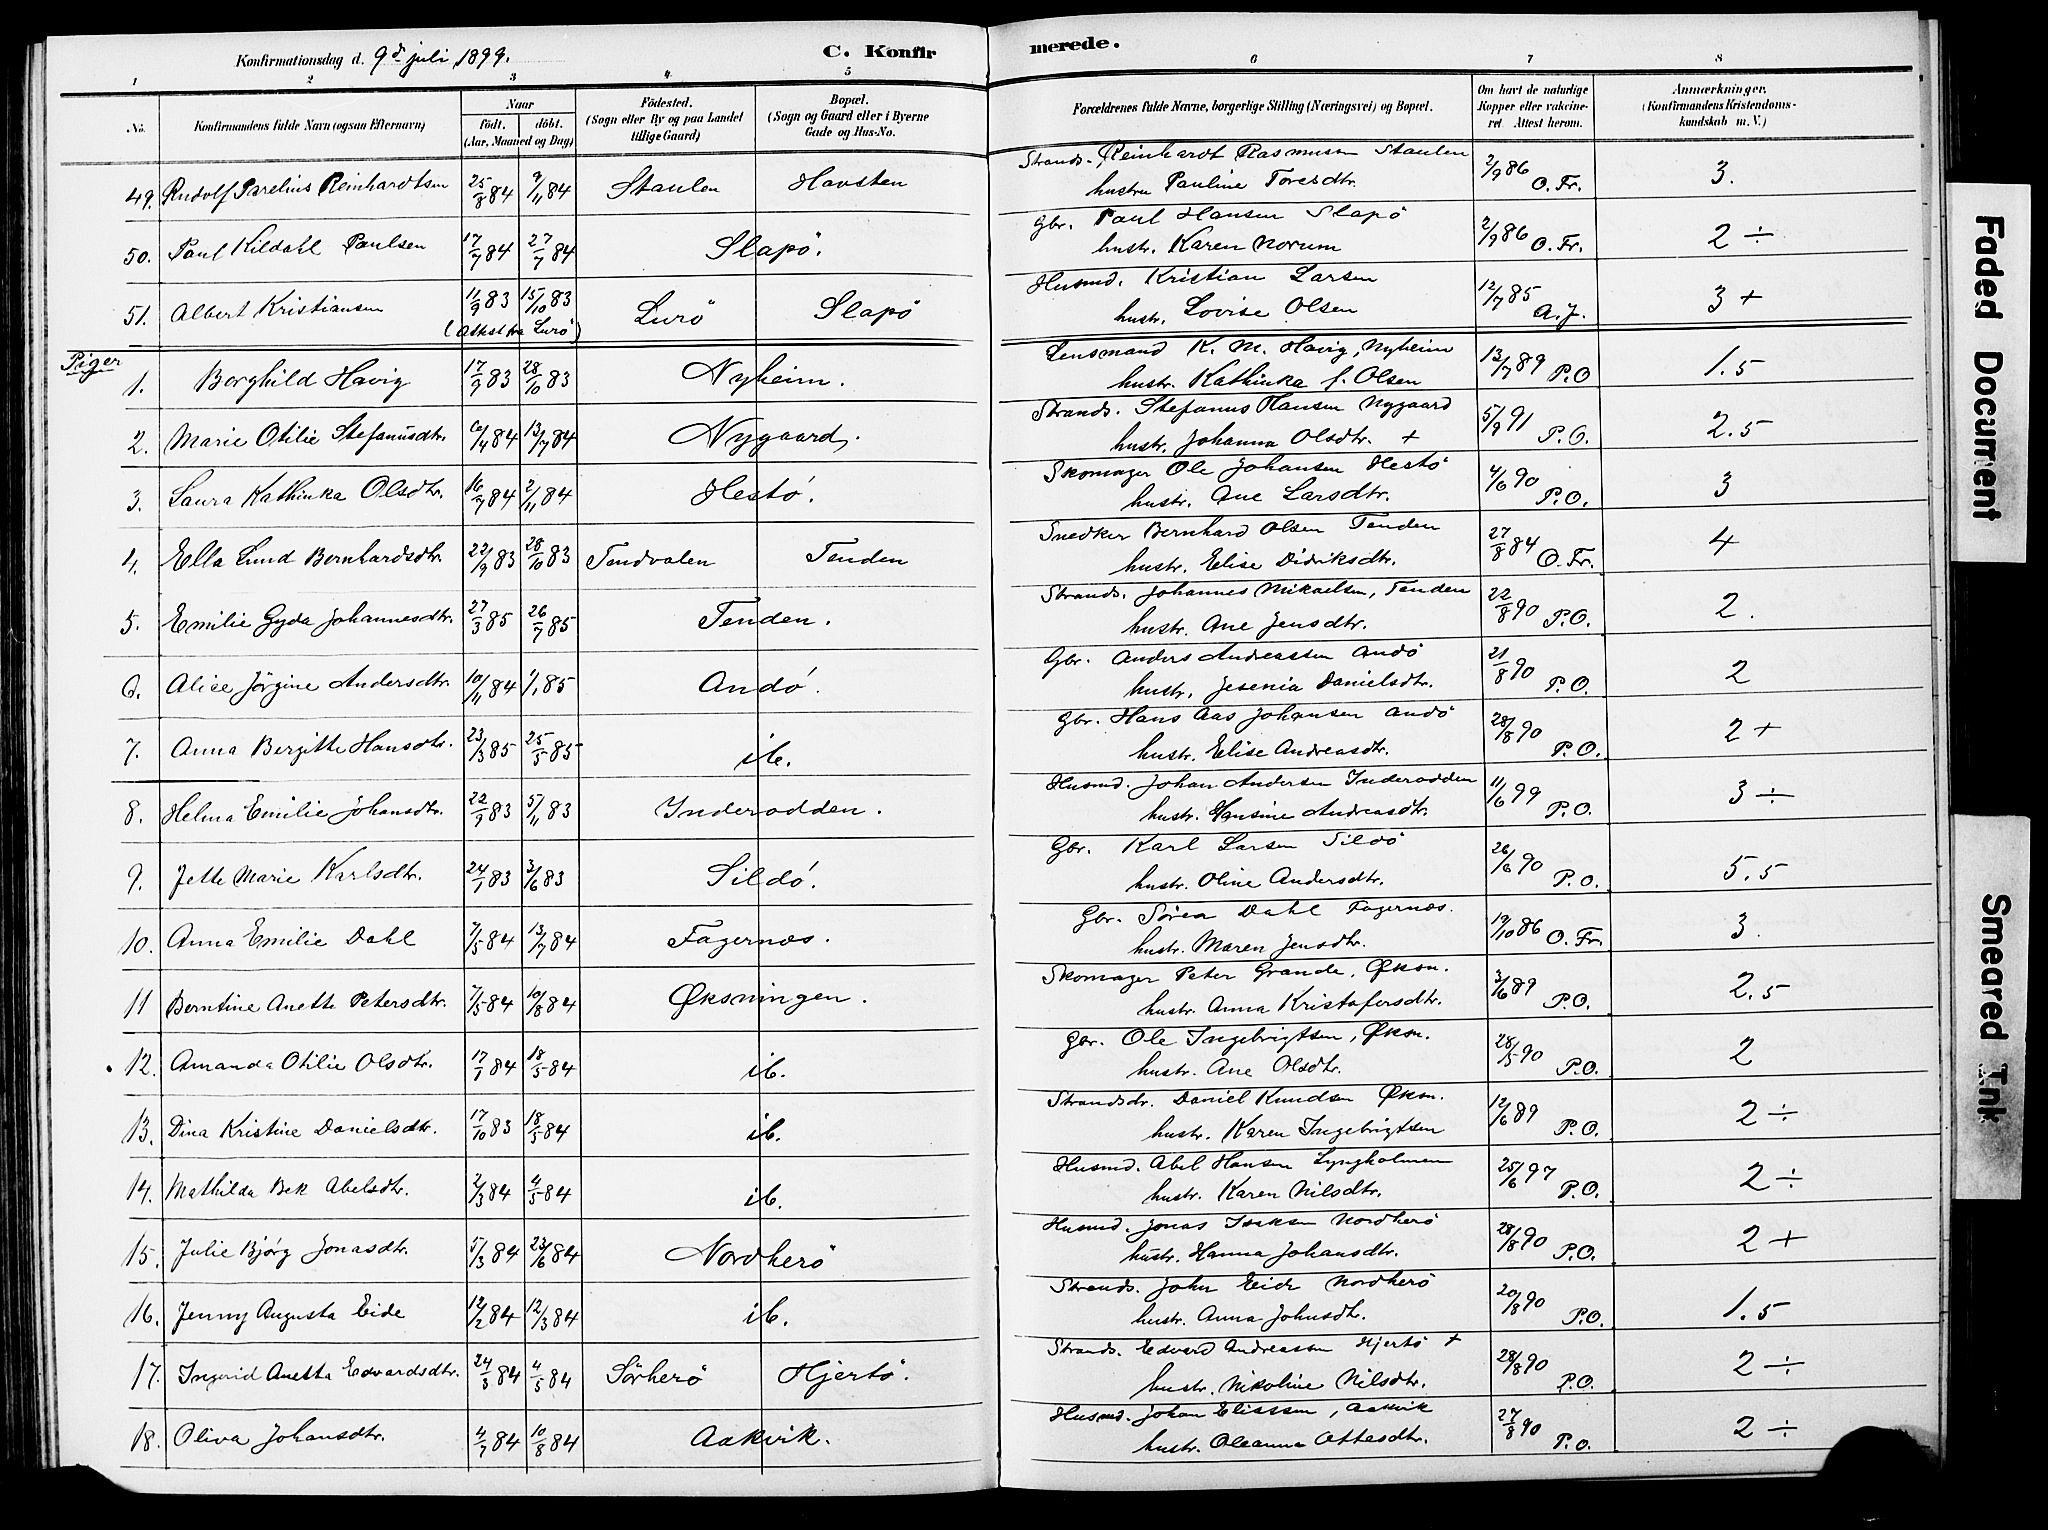 Konfirmationsdag d. 9de juli 1899.
C. Konfirmerede.
1 2 3 4 5 6 7 8
No.
Konfirmandens fulde Navn (ogsaa Efternavn)
Naar
födt. döbt.
(Aar, Maaned og Dag)
Födested.
(Sogn eller By og paa Landet
tillige Gaard)
Bopæl.
(Sogn og Gaard eller i Byerne
Gade og Hus-No.
Forældrenes fulde Navne, borgerlige Stilling (Næringsvei) og Bopæl.
Om havt de naturlige
Kopper eller vakcine-
ret Attest herom.
Anmærkninger.
(Konfirmandens Kristendoms-
kundskab m. V.)
49. Rudolf Parelius Reinhardtsen 25/8 84 9/11 84 Staulen Havsten Strands. Reinhardt Rasmusen Staulen 2/9 86 O. Fr. 3.
hustru Pauline Toresdtr.
50. Paul Kildahl Paulsen 17/7 84 27/7 84 Slapö. Gbr. Paul Hansen Slapö 2/9 86 O. Fr. 2 ÷
hustr. Karen Norum
51. Albert Kristiansen 11/9 83 15/10 83 Lurö Slapö Husmd. Kristian Larsen 12/7 85 A. J. 3 +
(Attest fra Lurö) hustr. Lovise Olsen
Piger
1. Borghild Havig 17/9 83 28/10 83 Nyheim. Lensmand K. M. Havig, Nyheim 13/7 89 P.O 1.5
hustr. Kathinka f. Olsen
2. Marie Otilie Stefanusdtr. 4 84 13/7 84 Nygaard. Strands. Stefanus Hansen Nygaard 5/9 91 P.O. 2.5
hustr. Johanna Olsdtr. +
3. Laura Kathinka Olsdtr. 16/7 84 2/11 84 Hestö. Skomager Ole Johansen Hestö 4/6 90 P.O. 3
hustr. Ane Larsdtr.
4. Ella Lund Bernhardsdtr. 22/9 83 28/10 83 Tendvalen Tenden Snedker Bernhard Olsen Tenden 27/8 84 O. Fr. 4
hustr. Elise Didriksdtr.
5. Emilie Gyda Johannesdtr. 27/3 85 26/7 85 Tenden. Strands. Johannes Mikaelsen, Tenden 22/8 90 P.O. 2.
hustr. Ane Jensdtr.
6. Alice Jörgine Andersdtr. 10/11 84 1/1 85 Andö. Gbr. Anders Andreassen Andö 21/8 90 P.O. 2
hustr. Jesenia Danielsdtr.
7. Anna Bergitte Hansdtr. 23/3 85 25/5 85 ib. Gbr. Hans Aas Johansen Andö 28/8 90 P.O. 2 +
hustr. Elise Andreasdtr.
8. Helma Emilie Johansdtr. 22/9 83 5/11 83 Inderodden. Husmd. Johan Andersen Inderodden 11/6 99 P.O. 3 ÷
hustr. Hansine Andreasdtr.
9. Jette Marie Karlsdtr. 24/1 83 3/6 83 Sildö. Gbr. Karl Larsen Sildö 26/6 90 P.O. 5.5
hustr. Oline Andersdtr.
10. Anna Emilie Dahl 7/5 84 13/7 84 Fagernæs. Gbr. Sören Dahl Fagernæs. 19/10 86 O. Fr. 3.
hustr. Maren Jensdtr.
11 Berntine Anette Petersdtr. 7/5 84 10/8 84 Øksningen. Skomager Peter Grande, Øksn. 3/6 89 P.O. 2.5
hustr. Anna Kristofersdtr.
12. Amanda Otilie Olsdtr. 17/1 84 18/5 84 ib. Gbr. Ole Ingebrigtsen, Øksn. 28/5 90 P.O. 2
hustr. Ane Olsdtr.
13. Dina Kristine Danielsdtr. 17/10 83 18/5 84 ib. Strandsdr. Daniel Knudsen Øksn. 12/6 89 P.O. 2 ÷
hustr. Karen Ingebrigtsen
14. Mathilda Bek Abelsdtr. 2/3 84 4/5 84 ib. Husmd. Abel Hansen Lyngholmen 25/6 97 P.O. 2 ÷
hustr. Karen Nilsdtr.
15. Julie Bjørg Jonasdtr. 5/3 84 23/6 84 Nordherö Husmd. Jonas Isaksen Nordherö 28/8 90 P.O. 2 +
hustr. Hanna Johansdtr.
16. Jenny Augusta Eide 12/2 84 12/3 84 ib. Strands. John Eide Nordherö 20/8 90 P.O. 1.5
hustr. Anna Johnsdtr.
17. Ingvrid Anetta Edvardsdtr. 24/3 84 4/5 84 Sörherö Hjertö. Strands. Edvard Andreassen Hjertö + 28/8 90 P.O. 2 ÷
hustr. Nikoline Nilsdtr.
18. Oliva Johansdtr. 4/7 84 10/8 84 Aakvik. Husmd. Johan Eliassen, Aakvik 27/8 90 P.O. 2 ÷
hustr. Oleanna Ottesdtr.
Faded Document
Smeared Ink